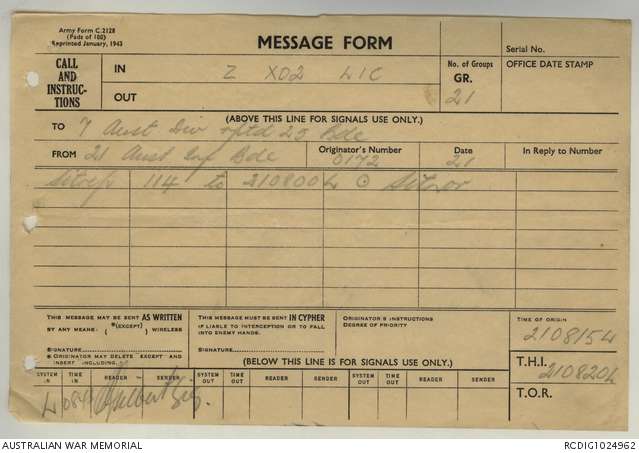 Army Form C.2128
(Pads of 100)
Reprinted January, 1943
MESSAGE FORM
Serial No.
CALL AND INSTRUC-TIONS
IN Z XO2 L1C
No. of Groups
GR. 21
OFFICE DATE STAMP
OUT
(ABOVE THIS LINE FOR SIGNALS USE ONLY.)
TO 7 Aust Div rptd 25 Bde
FROM 21 Aust Inf Bde
Originator's Number 0172
Date 21
In Reply to Number
Sitrep 114 to 210800L ⊙ Sitnor
THIS MESSAGE MAY BE SENT AS WRITTEN
BY ANY MEANS. *(EXCEPT) WIRELESS
SIGNATURE
* ORIGINATOR MAY DELETE EXCEPT AND INSERT INCLUDING.
THIS MESSAGE MUST BE SENT IN CYPHER
IF LIABLE TO INTERCEPTION OR TO FALL INTO ENEMY HANDS.
SIGNATURE
ORIGINATOR'S INSTRUCTIONS
DEGREE OF PRIORITY
TIME OF ORIGIN
210815L
(BELOW THIS LINE IS FOR SIGNALS USE ONLY.)
T.H.I. 210820L
T.O.R.
SYSTEM IN TIME IN READER SENDER SYSTEM OUT TIME OUT READER SENDER SYSTEM OUT TIME OUT READER SENDER
AUSTRALIAN WAR MEMORIAL
RCDIG1024962